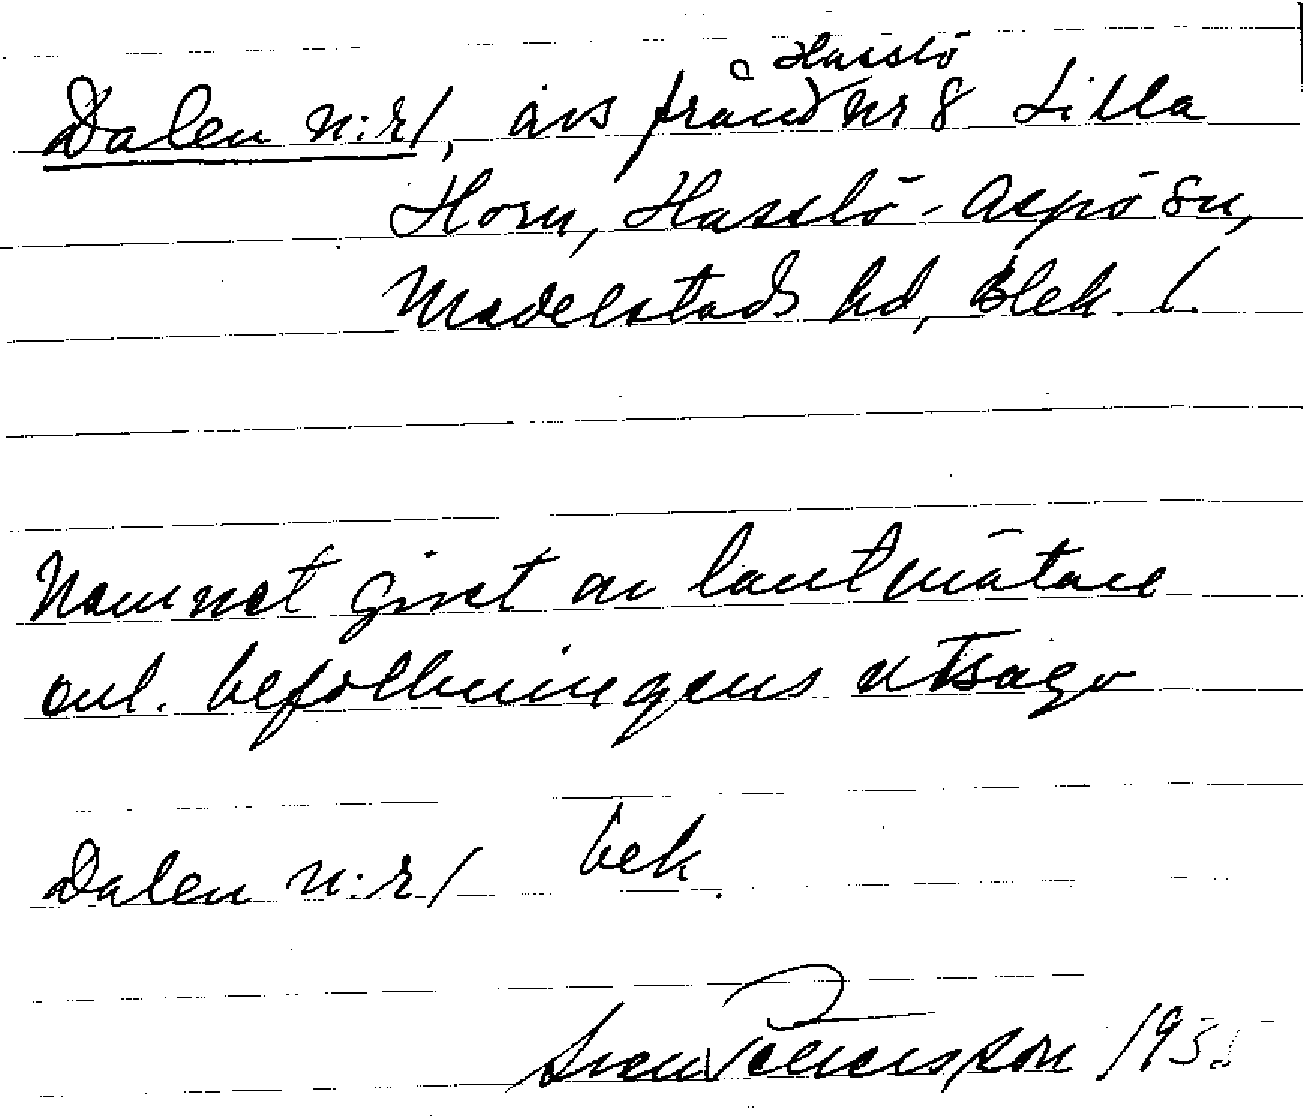 Hasslö
Dalen n:r 1, avs från nr 8 Lilla
Horn, Hasslö-Aspö sn,
Medelstads hd, Blek. l.
Namnet givet av lantmätare
enl. befolkningens utsago
Dalen n:r 1 bek.
Sven Pettersson 193